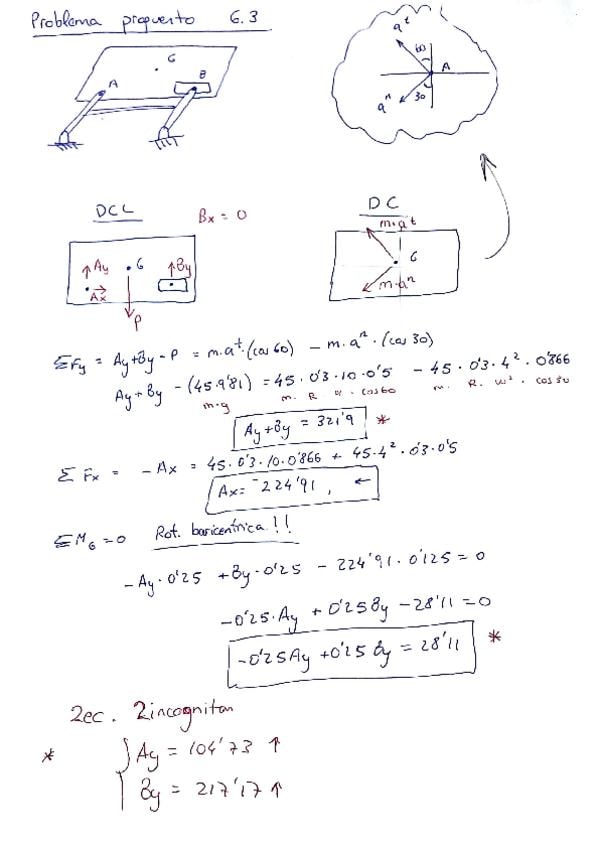 Problema propuesto 6.3
G
A
B
a^t
60
A
30
a^n
DCL
Bx = 0
DC
Ay
G
By
Ax
P
m·a^t
G
m·a^n
ΣFy = Ay+By - P = m·a^t·(cos 60) - m·a^n·(cos 30)
Ay + By - (45·9'81) = 45·0'3·10·0'5 - 45·0'3·4²·0'866
m·g m. R. α. cos60 m. R. w². cos 30
Ay+By = 321'9 *
ΣFx = -Ax = 45·0'3·10·0'866 + 45·4²·0'3·0'5
Ax = -224'91, ←
ΣM_G=0 Rot. baricentrica!!
-Ay·0'25 + By·0'25 - 224'91·0'125 = 0
-0'25·Ay + 0'25By - 28'11 = 0
-0'25Ay + 0'25By = 28'11 *
2ec. 2incognitas
* Ay = 104'73 ↑
By = 217'17 ↑